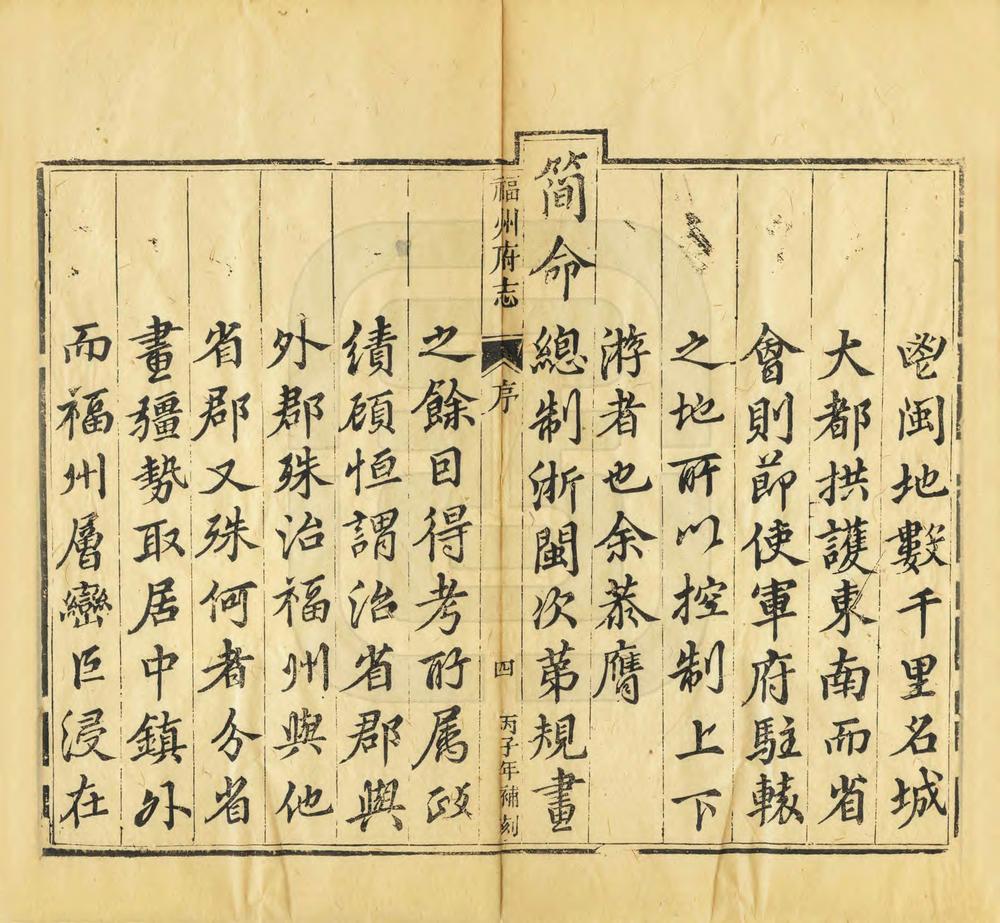 閩地數千里名城
大都拱護東南而省
會則節使軍府駐轅
之地所以控制上下
游者也余恭膺
簡命總制浙閩次第規畫
福州府志 序 四 丙子年補刻
之餘因得考所属政
績顧恒謂治省郡與
外郡殊治福州與他
省郡又殊何者分省
畫疆勢取居中鎮外
而福州層巒巨浸在